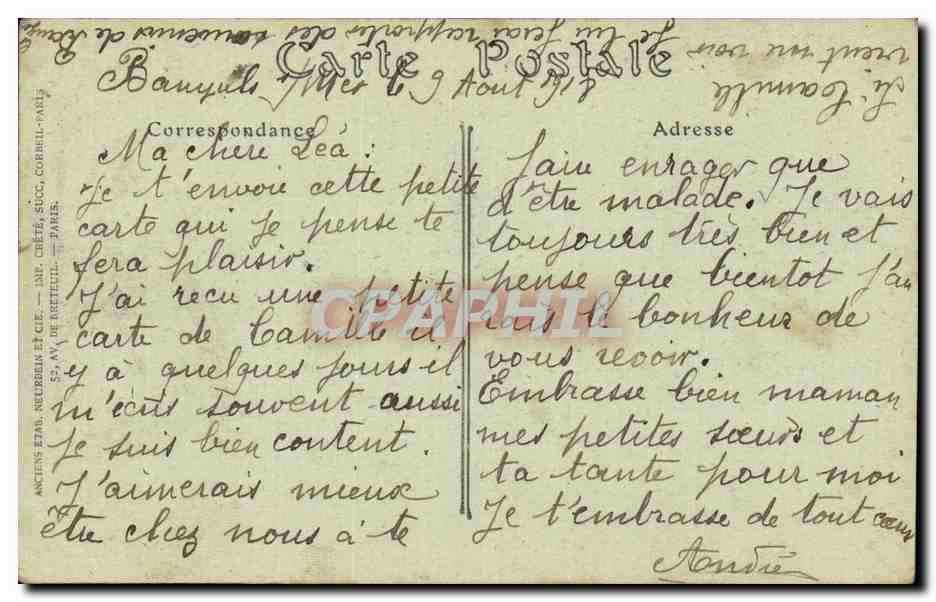 Carte Postale
Banyuls s/Mer le 9 Aout 1918
Correspondance
Ma chère Léa :
Je t'envoie cette petite
carte qui je pense te
fera plaisir.
J'ai reçu une petite
carte de Camille il
y à quelques jours il
m'écris souvent aussi
je suis bien content.
J'aimerais mieux
être chez nous à te
Adresse
faire enrager que
d'être malade. Je vais
toujours très bien et
pense que bientot j'au
rais le bonheur de
vous revoir.
Embrasse bien maman
mes petites sœurs et
ta tante pour moi
Je t'embrasse de tout cœur
André
Si Camille
vient me voir
je lui ferai rapporter des souvenirs de
ANCIENS ETAB. NEURDEIN ET CIE. — IMP. CRÉTÉ, SUCC, CORBEIL-PARIS
52, AV. DE BRETEUIL. — PARIS.
CPAPHIL